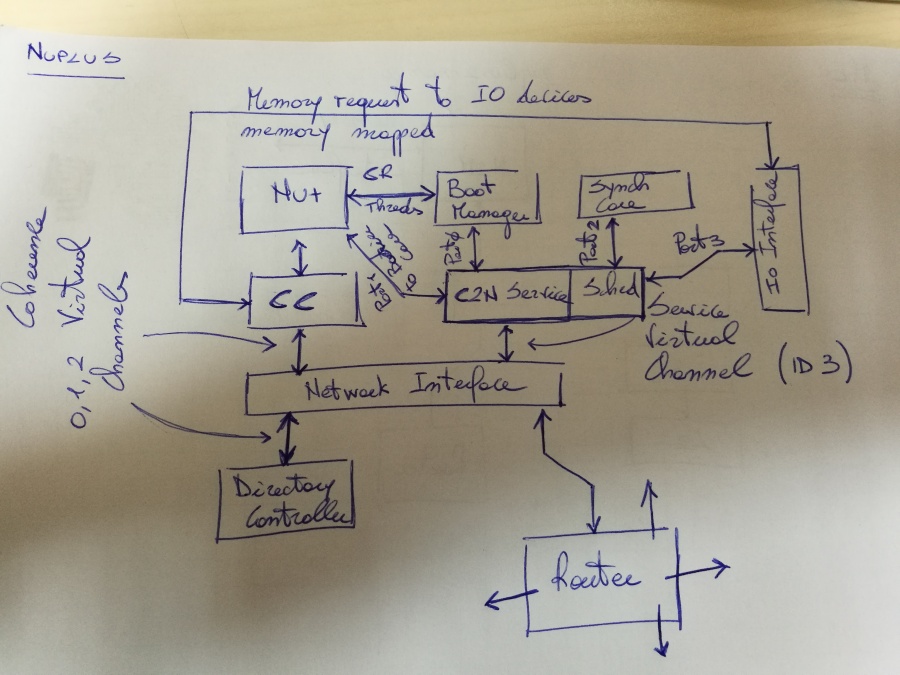 NUPLUS
Memory request to IO devices
memory mapped
NU+
CR
Threads
Boot
Manager
Synch
Core
IO Interface
Port 1
to Barrier
Core
Port 0
Port 2
Port 3
CC
C2N Service
Sched
Service
Virtual
Channel (ID 3)
Coherence
0, 1, 2 Virtual
Channels
Network Interface
Directory
Controller
Router